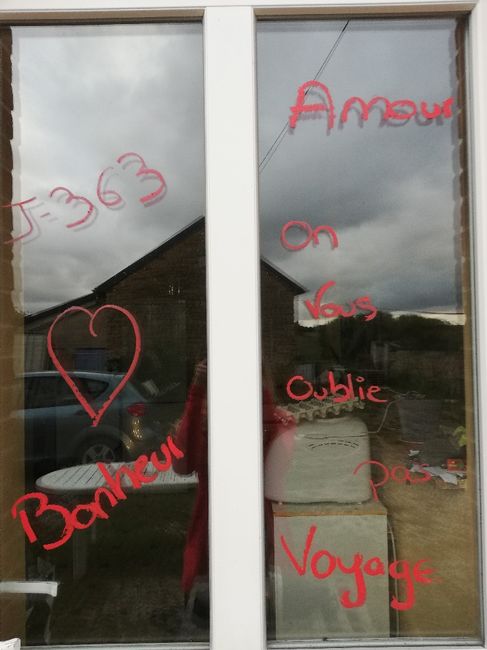 J-363
Bonheur
Amour
On
Vous
Oublie
pas
Voyage